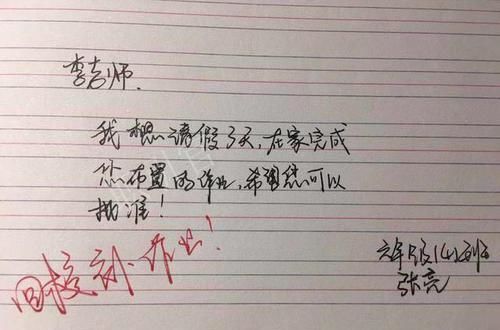 李老师.
我想请假3天,在家完成
您布置的作业,希望您可以
批准!
回校补作业!
六年级(4)班
张亮